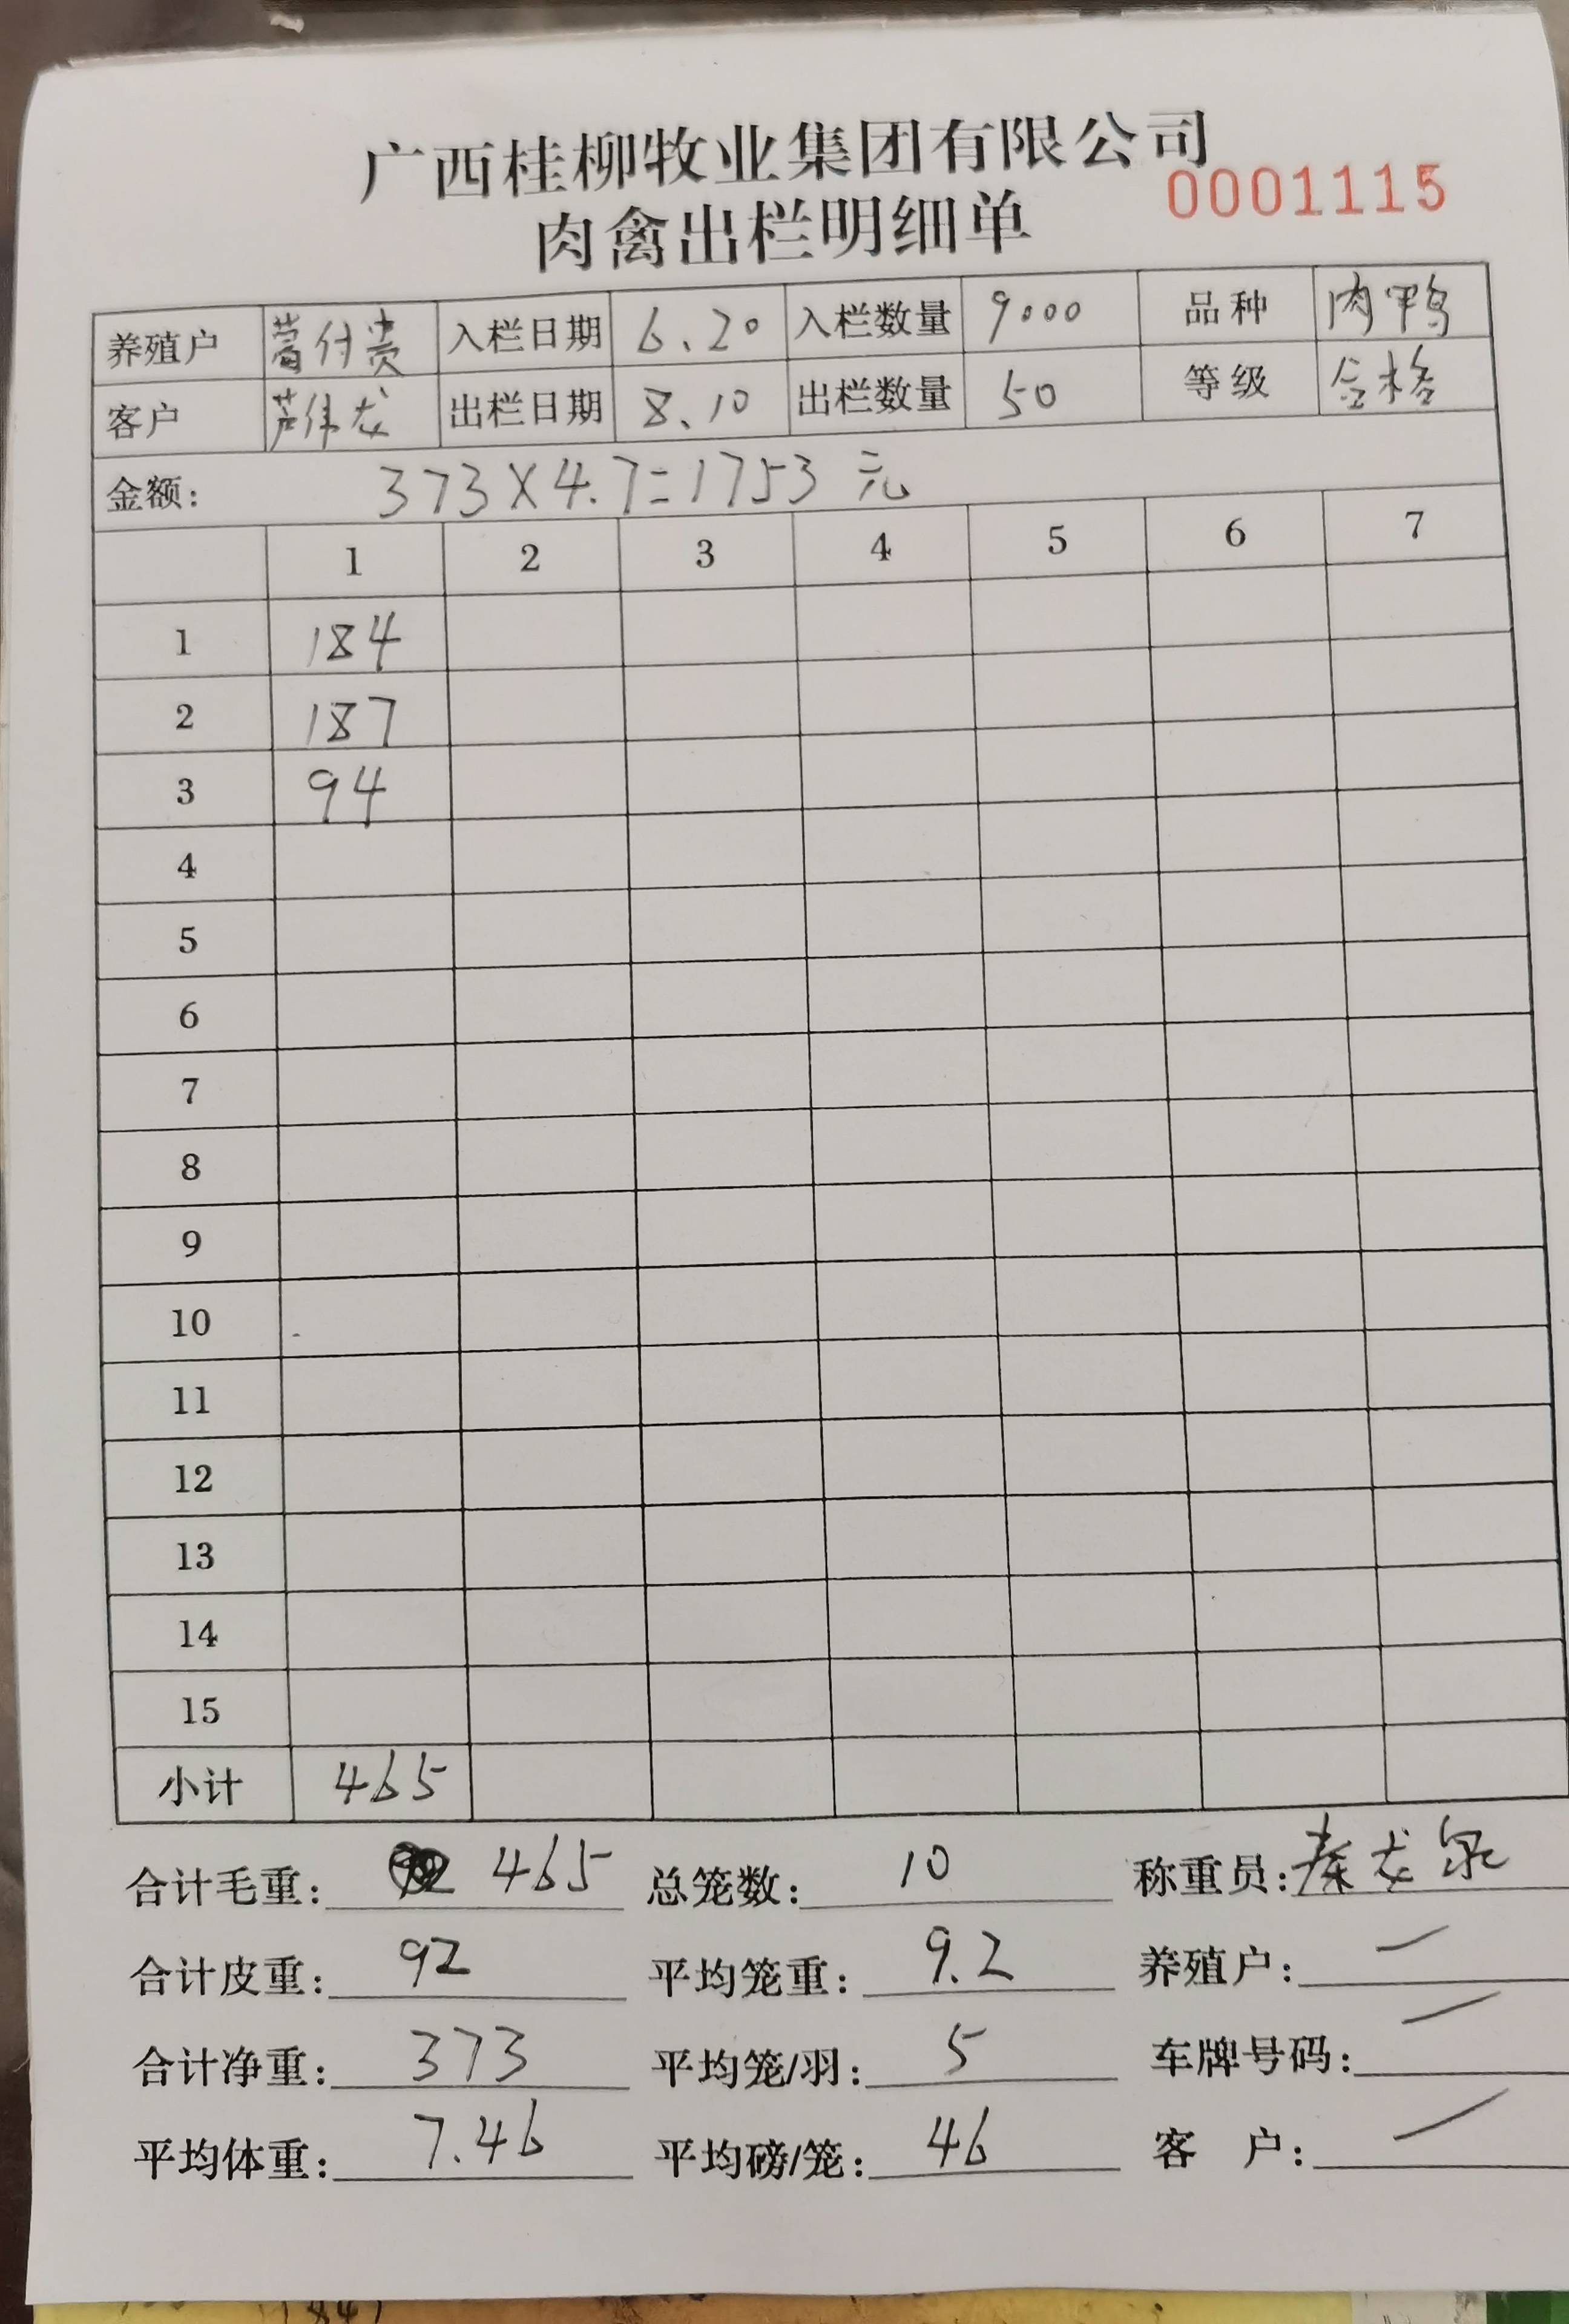 广西桂柳牧业集团有限公司
0001115
肉禽出栏明细单
养殖户 付贵 入栏日期 6.20 入栏数量 9000 品种 肉鸭
客户 芦伟龙 出栏日期 8.10 出栏数量 50 等级 合格
金额: 373X4.7=1753 元
1 2 3 4 5 6 7
1 184
2 187
3 94
4
5
6
7
8
9
10
11
12
13
14
15
小计 465
合计毛重: 465 总笼数: 10 称重员: 秦龙泉
合计皮重: 92 平均笼重: 9.2 养殖户: 一
合计净重: 373 平均笼/羽: 5 车牌号码: 一
平均体重: 7.46 平均磅/笼: 46 客 户: 一